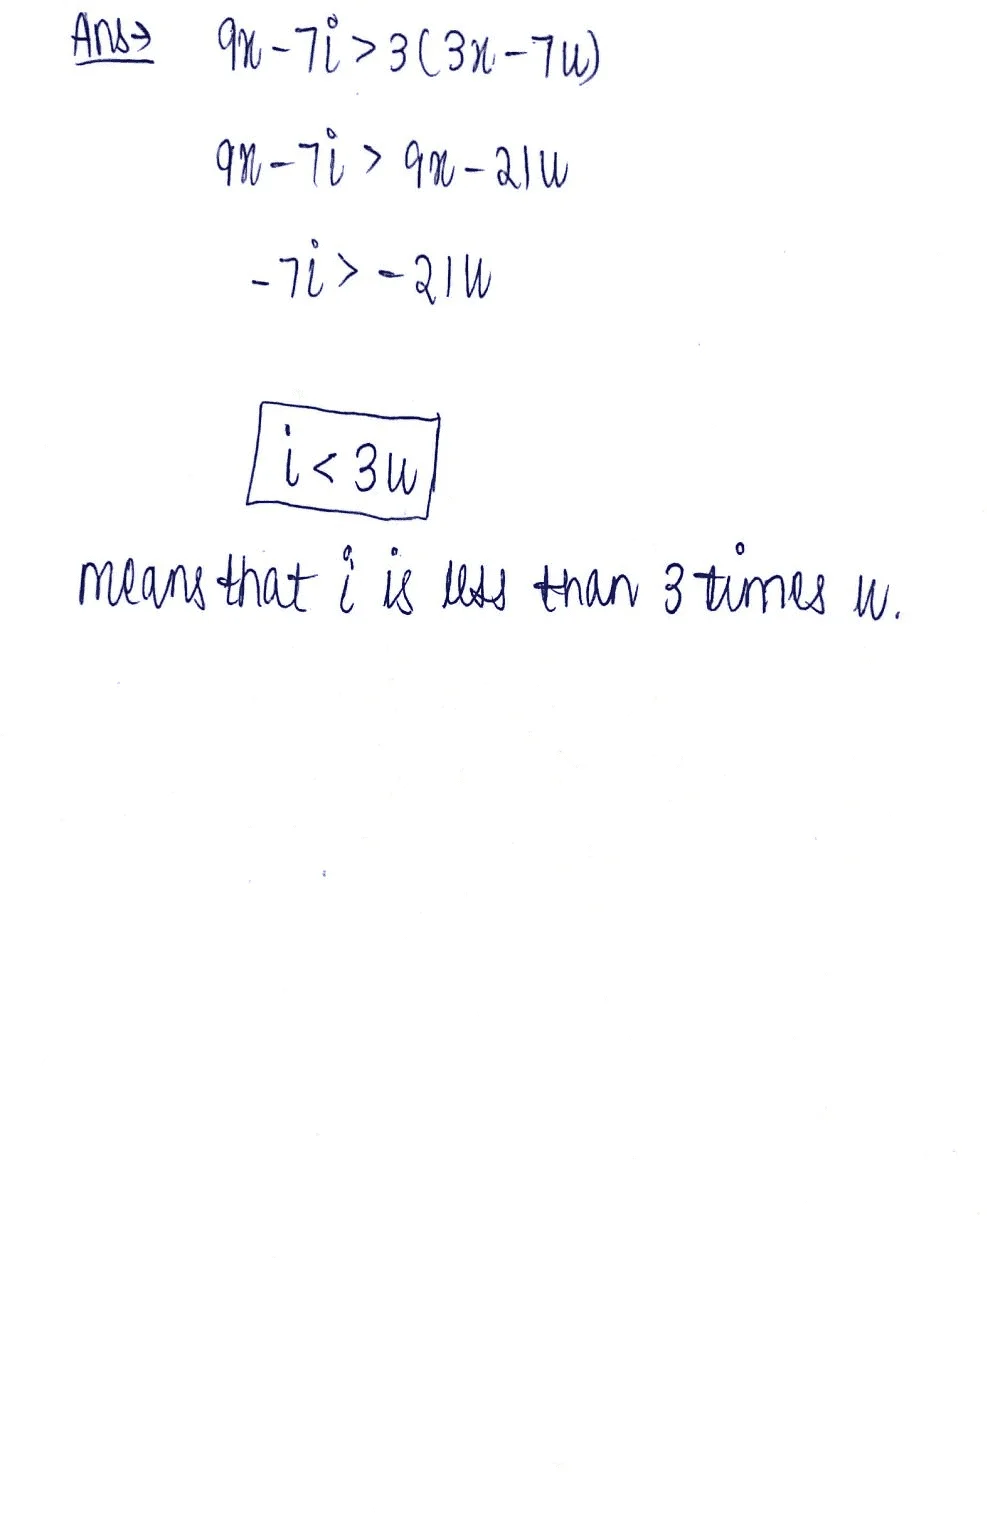 Ans→ 9x-7i>3(3x-7u)
9x-7i > 9x-21u
-7i>-21u
i<3u
means that i is less than 3 times u.